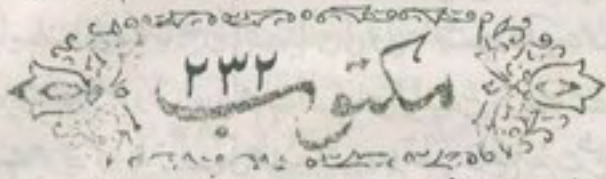 مکتوب ۲۳۲